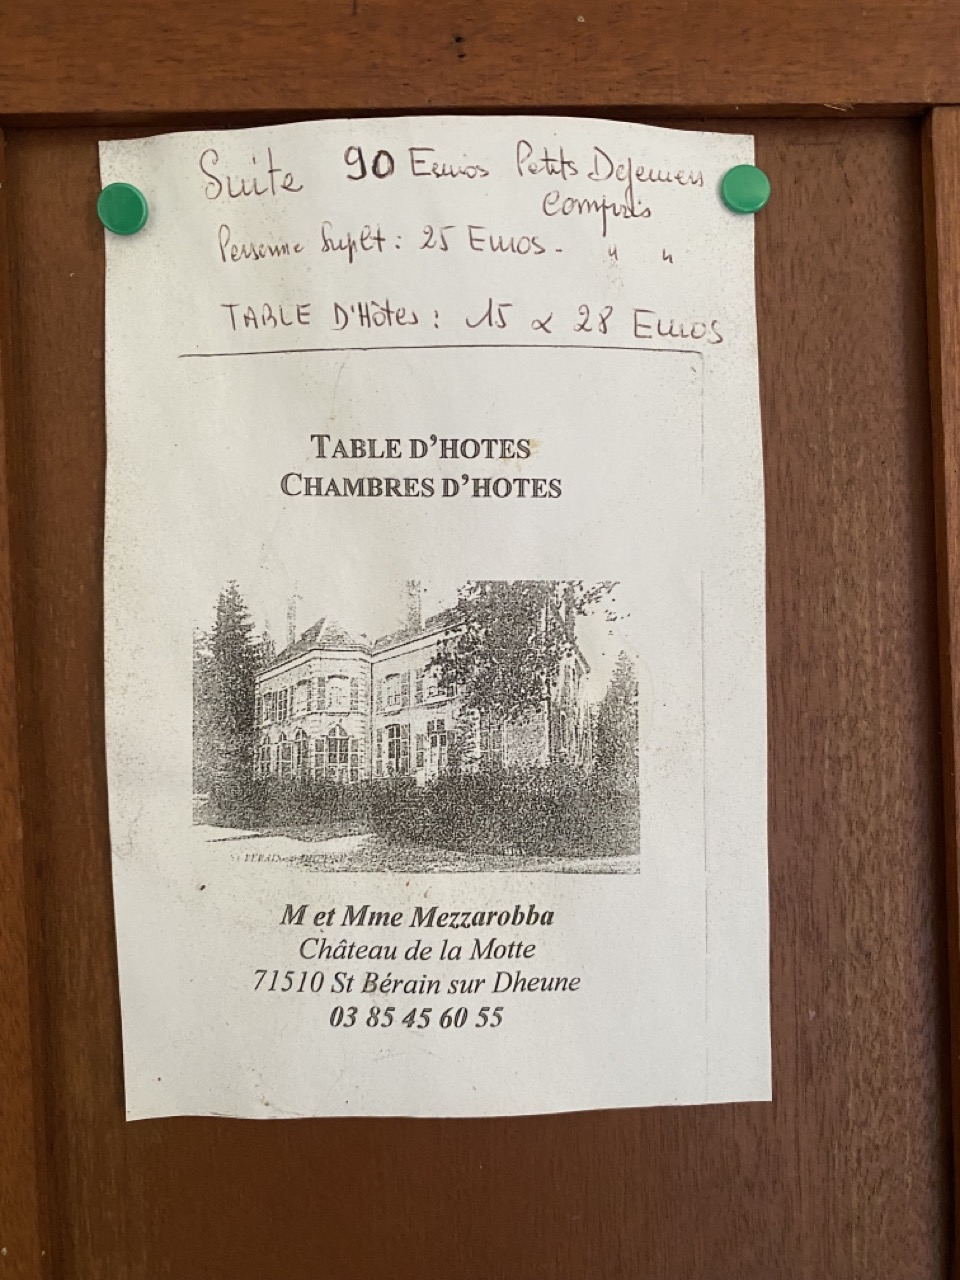 Suite 90 Euros Petits Dejeuners
Compris
Personne Suplt : 25 Euros - " "
TABLE D'Hôtes : 15 & 28 Euros
TABLE D'HOTES
CHAMBRES D'HOTES
St BÉRAIN
M et Mme Mezzarobba
Château de la Motte
71510 St Bérain sur Dheune
03 85 45 60 55